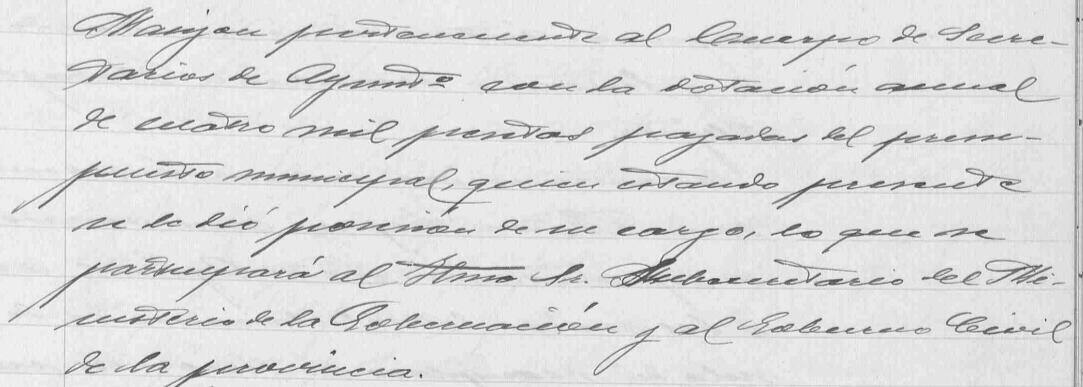 Manjon perteneciente al Cuerpo de Secre-
tarios de Ayuntº con la dotación anual
de cuatro mil pesetas pagadas del presu-
puesto municipal, quien estando presente
se le dió posesión de su cargo, lo que se
participará al Iltmo Sr. Subsecretario del Mi-
nisterio de la Gobernación y al Gobierno Civil
de la provincia.